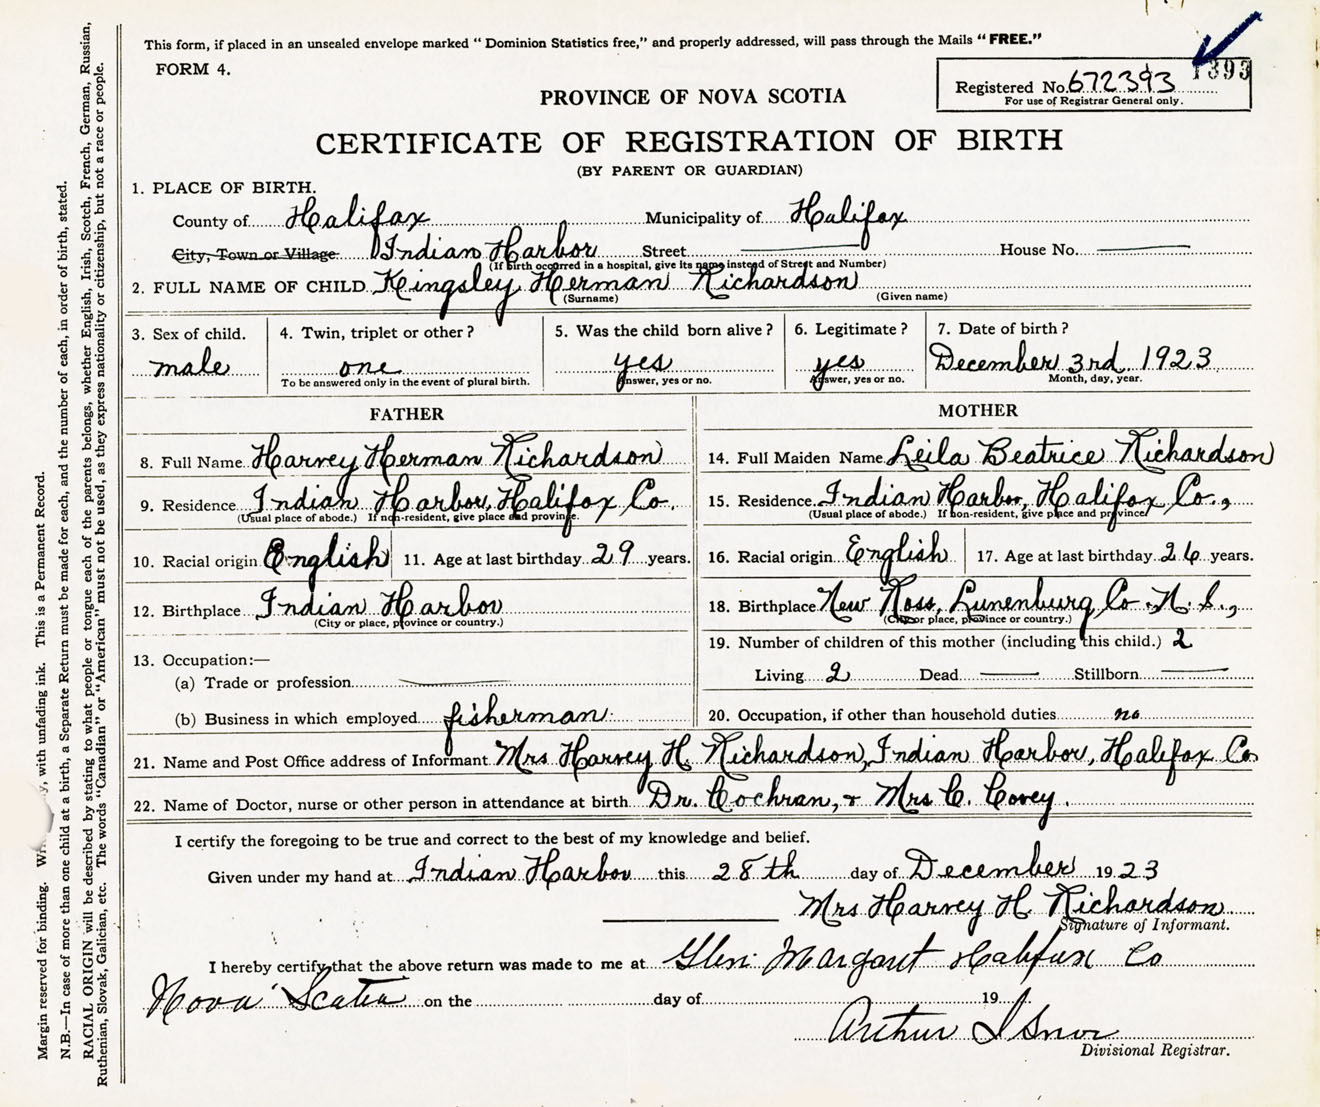 This form, if placed in an unsealed envelope marked "Dominion Statistics free," and properly addressed, will pass through the Mails "FREE."
FORM 4.
1393
Registered No. 672393
For use of Registrar General only.
PROVINCE OF NOVA SCOTIA
CERTIFICATE OF REGISTRATION OF BIRTH
(BY PARENT OR GUARDIAN)
1. PLACE OF BIRTH.
County of Halifax Municipality of Halifax
City, Town or Village Indian Harbor Street House No.
(If birth occurred in a hospital, give its name instead of Street and Number)
2. FULL NAME OF CHILD Kingsley Herman Richardson
(Surname) (Given name)
3. Sex of child. male
4. Twin, triplet or other? one
To be answered only in the event of plural birth.
5. Was the child born alive? yes
Answer, yes or no.
6. Legitimate? yes
Answer, yes or no.
7. Date of birth? December 3rd 1923
Month, day, year.
FATHER
8. Full Name Harvey Herman Richardson
9. Residence Indian Harbor, Halifax Co.
(Usual place of abode.) If non-resident, give place and province.
10. Racial origin English 11. Age at last birthday 29 years.
12. Birthplace Indian Harbor
(City or place, province or country.)
13. Occupation:—
(a) Trade or profession
(b) Business in which employed fisherman
MOTHER
14. Full Maiden Name Leila Beatrice Richardson
15. Residence Indian Harbor, Halifax Co.,
(Usual place of abode.) If non-resident, give place and province
16. Racial origin English 17. Age at last birthday 26 years.
18. Birthplace New Ross, Lunenburg Co. N. S.,
(City or place, province or country.)
19. Number of children of this mother (including this child.) 2
Living 2 Dead Stillborn
20. Occupation, if other than household duties no
21. Name and Post Office address of Informant Mrs Harvey H. Richardson, Indian Harbor, Halifax Co.
22. Name of Doctor, nurse or other person in attendance at birth Dr. Cochran, & Mrs C. Covey.
I certify the foregoing to be true and correct to the best of my knowledge and belief.
Given under my hand at Indian Harbor this 28th day of December 1923
Mrs Harvey H. Richardson
Signature of Informant.
I hereby certify that the above return was made to me at Glen Margaret Halifax Co
Nova Scotia on the day of 19
Arthur Isnor
Divisional Registrar.
Margin reserved for binding. with unfading ink. This is a Permanent Record.
N.B.—In case of more than one child at a birth, a Separate Return must be made for each, and the number of each, in order of birth, stated.
RACIAL ORIGIN will be described by stating to what people or tongue each of the parents belongs, whether English, Irish, Scotch, French, German, Russian,
Ruthenian, Slovak, Galician, etc. The words "Canadian" or "American" must not be used, as they express nationality or citizenship, but not a race or people.